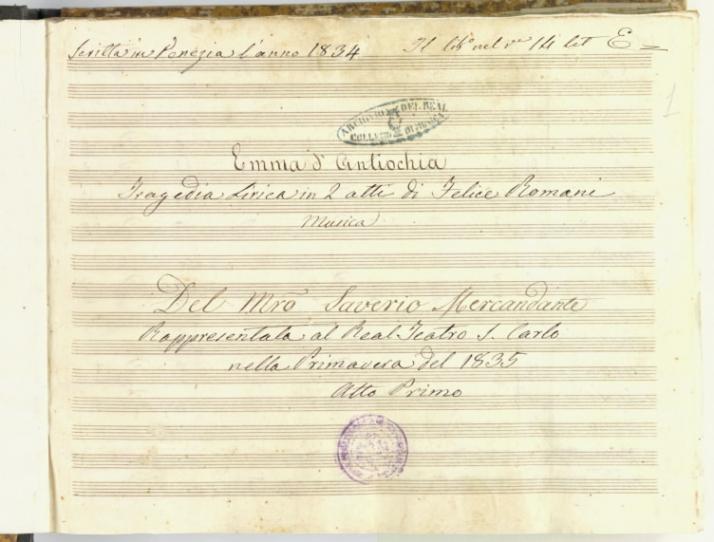 Scritta in Venezia l'anno 1834 Il lib.º nel v.e 14 let E =
1
ARCHIVIO DEL REAL
COLLEGIO DI MUSICA
Emma d'Antiochia
Tragedia Lirica in 2 atti di Felice Romani
Musica
Del Mro Saverio Mercandante
Rappresentata al Real Teatro S. Carlo
nella Primavera del 1835
Atto Primo